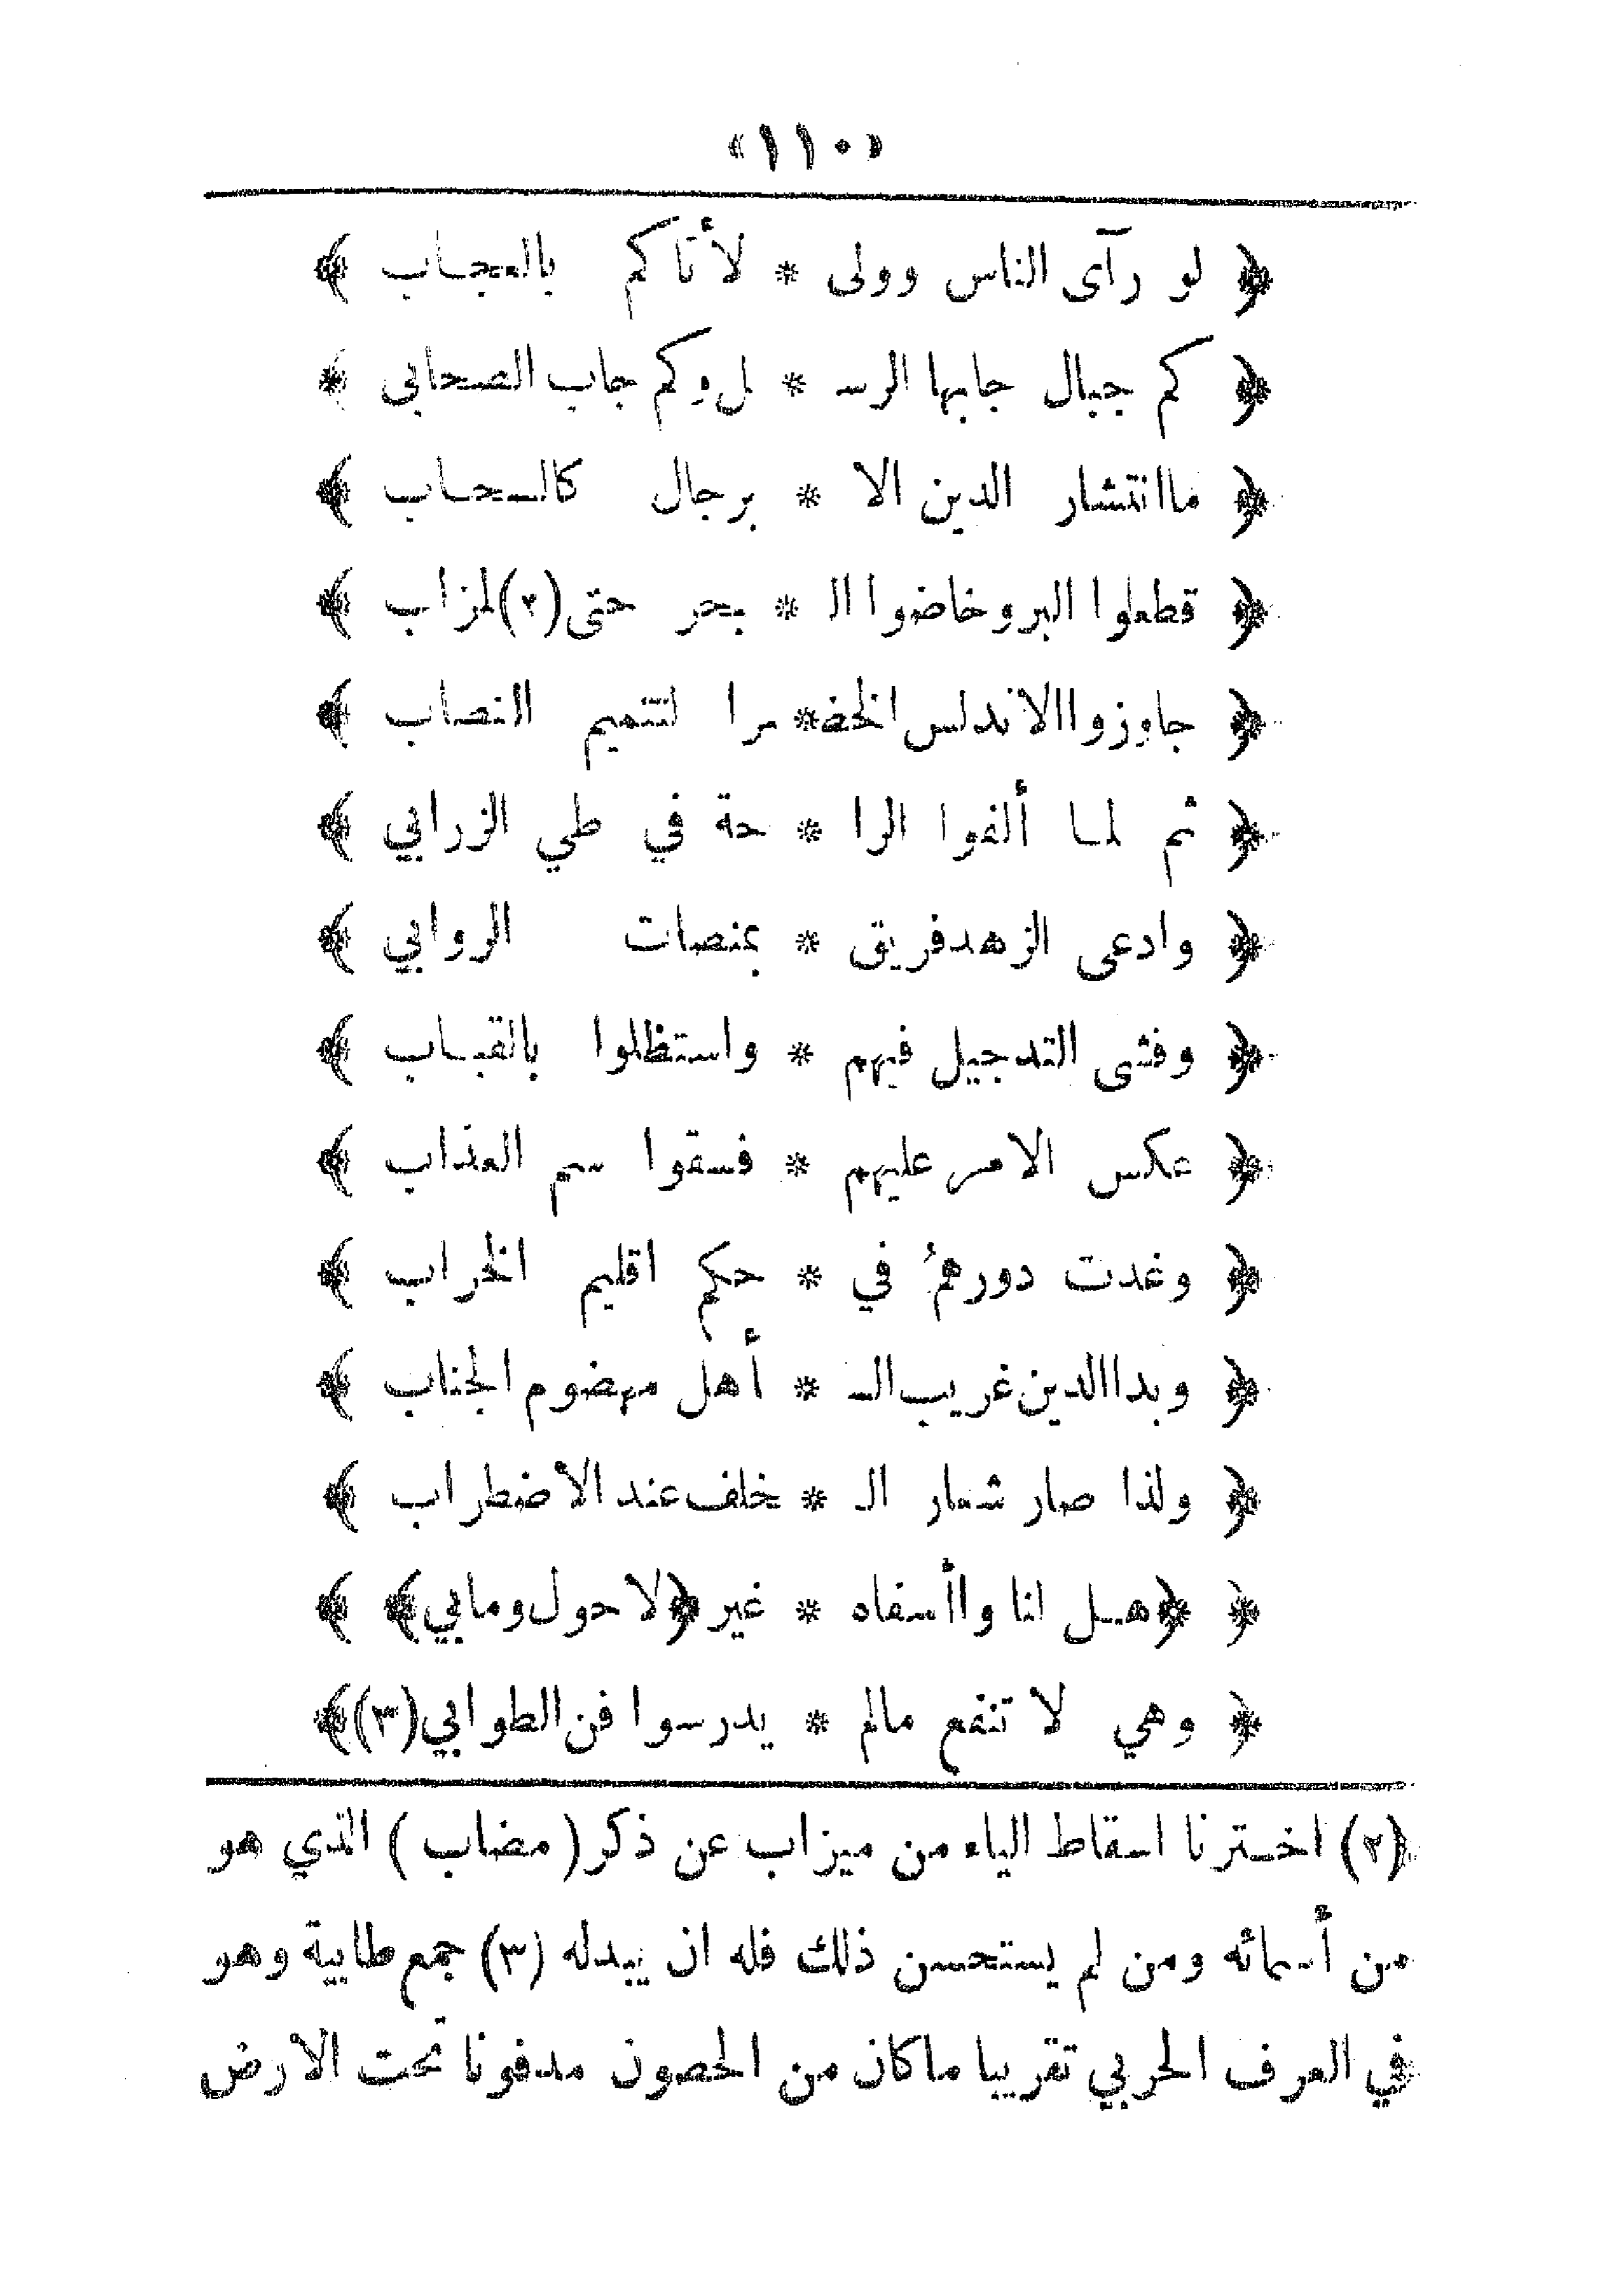 «١١٠»
﴿ لو رآى الناس وولى * لأتاكم بالعجاب ﴾
﴿ كم جبال جابها الرسـ * ل وكم جاب الصحابي ﴾
﴿ ماانتشار الدين الا * برجال كالسحاب ﴾
﴿ قطعوا البر وخاضوا الـ * بحر حتى (٢) لمزاب ﴾
﴿ جاوزوا الاندلس الخضـ * را لتتميم النصاب ﴾
﴿ ثم لما ألفوا الرا * حة في طي الزرابي ﴾
﴿ وادعى الزهد فريق * بمنصات الروابي ﴾
﴿ وفشى التدجيل فيهم * واستظلوا بالقباب ﴾
﴿ عكس الامر عليهم * فسقوا سم العذاب ﴾
﴿ وغدت دورهمُ في * حكم اقليم الخراب ﴾
﴿ وبدا الدين غريب الـ * أهل مهضوم الجناب ﴾
﴿ ولذا صار شعار الـ * خلف عند الأضطراب ﴾
﴿ ﴿هل انا واأسفاه * غير ﴿لا حول وما بي﴾ ﴾
﴿ وهي لا تنفع مالم * يدرسوا فن الطوابي (٣)﴾
(٢) اخترنا اسقاط الياء من ميزاب عن ذكر ( مضاب ) الذي هو
من أسمائه ومن لم يستحسن ذلك فله ان يبدله (٣) جمع طابية وهو
في العرف الحربي تقريبا ماكان من الحصون مدفونا تحت الارض